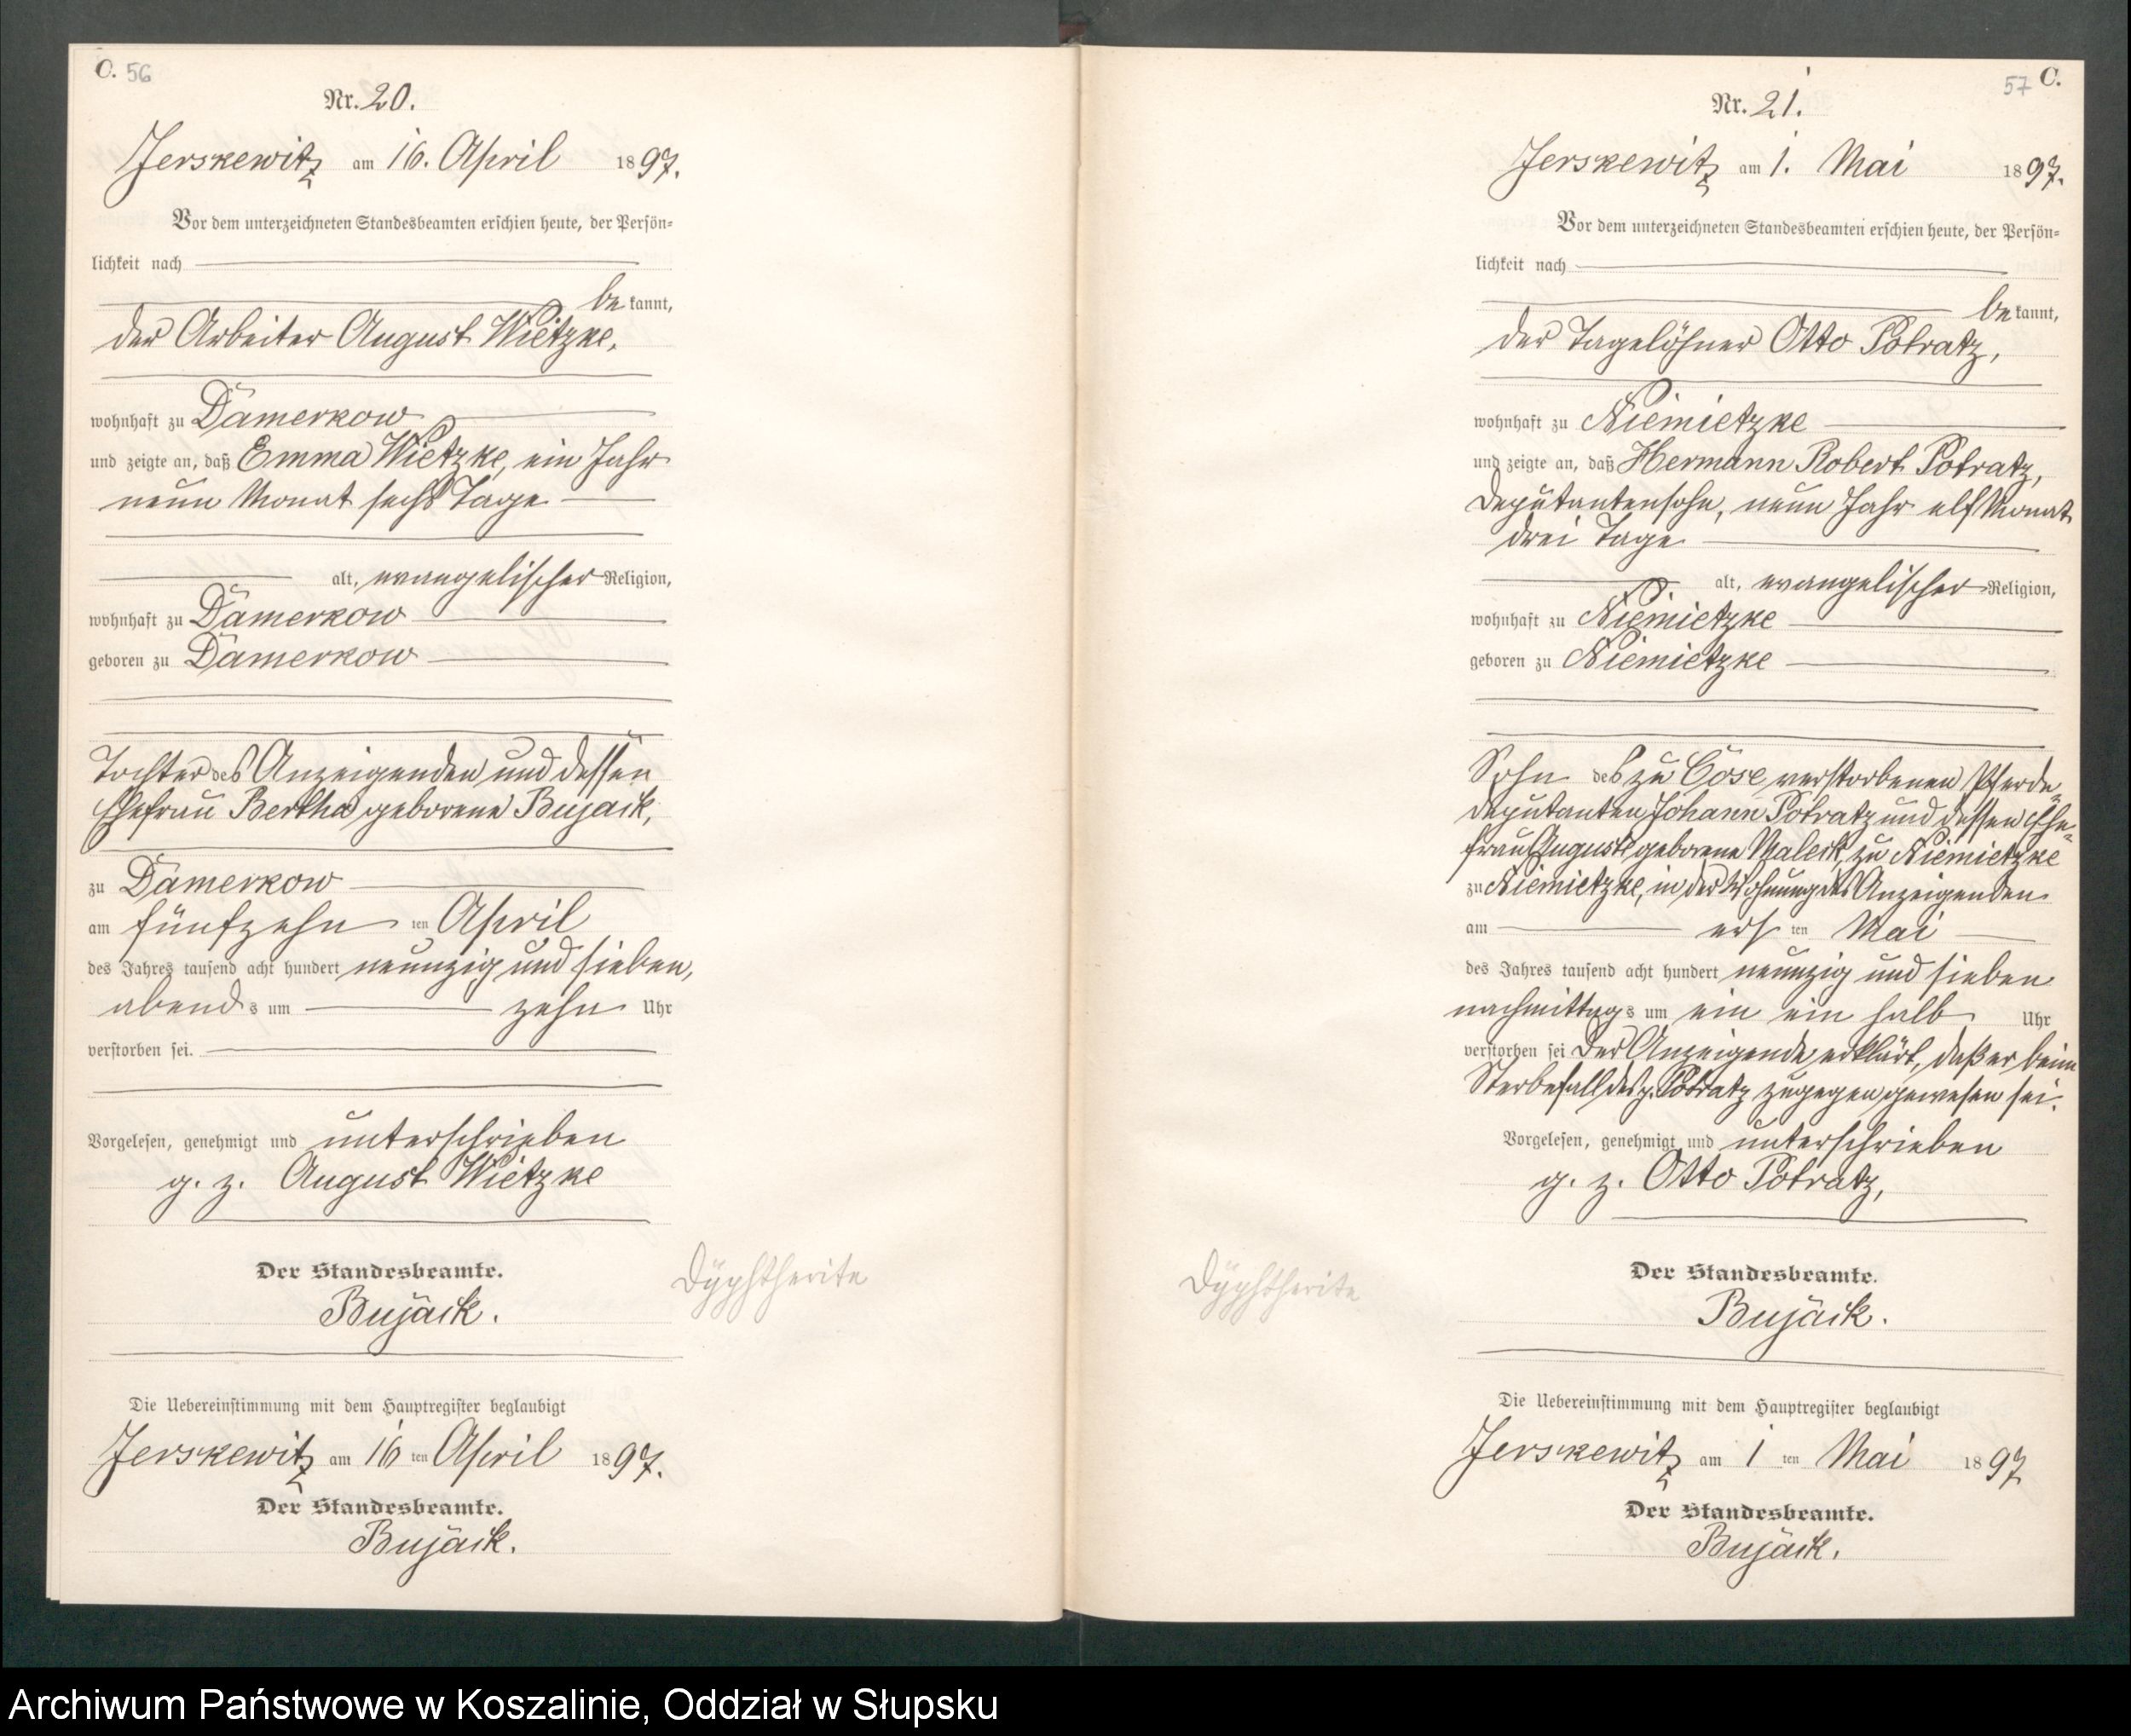 C. 56
Nr. 20.
Jerskewitz am 16. April 1897.
Vor dem unterzeichneten Standesbeamten erschien heute, der Persön-
lichkeit nach
bekannt,
der Arbeiter August Wietzke,
wohnhaft zu Damerkow
und zeigte an, daß Emma Wietzke, ein Jahr
neun Monat sechs Tage
alt, evangelischer Religion,
wohnhaft zu Damerkow
geboren zu Damerkow
Tochter des Anzeigenden und dessen
Ehefrau Bertha geborene Bujack,
zu Damerkow
am fünfzehn ten April
des Jahres tausend acht hundert neunzig und sieben,
abends um zehn Uhr
verstorben sei.
Vorgelesen, genehmigt und unterschrieben
g. z. August Wietzke
Der Standesbeamte.
Bujack.
Dyphtherite
Die Uebereinstimmung mit dem Hauptregister beglaubigt
Jerskewitz am 16 ten April 1897.
Der Standesbeamte.
Bujack.
57 C.
Nr. 21.
Jerskewitz am 1. Mai 1897.
Vor dem unterzeichneten Standesbeamten erschien heute, der Persön-
lichkeit nach
bekannt,
der Tagelöhner Otto Potratz,
wohnhaft zu Niemietzke
und zeigte an, daß Hermann Robert Potratz,
Deputantensohn, neun Jahr elf Monat
drei Tage
alt, evangelischer Religion,
wohnhaft zu Niemietzke
geboren zu Niemietzke
Sohn des zu Cose verstorbenen Pferde-
deputanten Johann Potratz und dessen Ehe-
frau Auguste geborene Maleck, zu Niemietzke
zu Niemietzke, in der Wohnung des Anzeigenden
am ers ten Mai
des Jahres tausend acht hundert neunzig und sieben
nachmittags um ein ein halb Uhr
verstorben sei Der Anzeigende erklärt, daß er beim
Sterbefall des p. Potratz zugegen gewesen sei.
Vorgelesen, genehmigt und unterschrieben
g. z. Otto Potratz,
Der Standesbeamte.
Bujack.
Dyphtherite
Die Uebereinstimmung mit dem Hauptregister beglaubigt
Jerskewitz am 1 ten Mai 1897
Der Standesbeamte.
Bujack.
Archiwum Państwowe w Koszalinie, Oddział w Słupsku